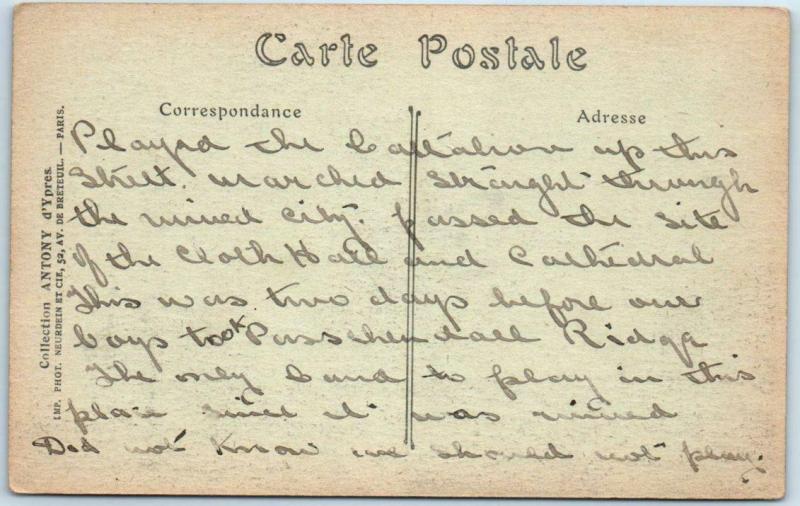 Carte Postale
Correspondance
Adresse
Collection ANTONY d'Ypres.
IMP. PHOT. NEURDEIN ET CIE, 52, AV. DE BRETEUIL. — PARIS.
Played the Battalion up this
Street. marched straight through
the ruined City. passed the site
of the Cloth Hall and Cathedral
This was two days before our
boys took Passchendall Ridge
The only band to play in this
place since it was ruined
Did not know we should not play.